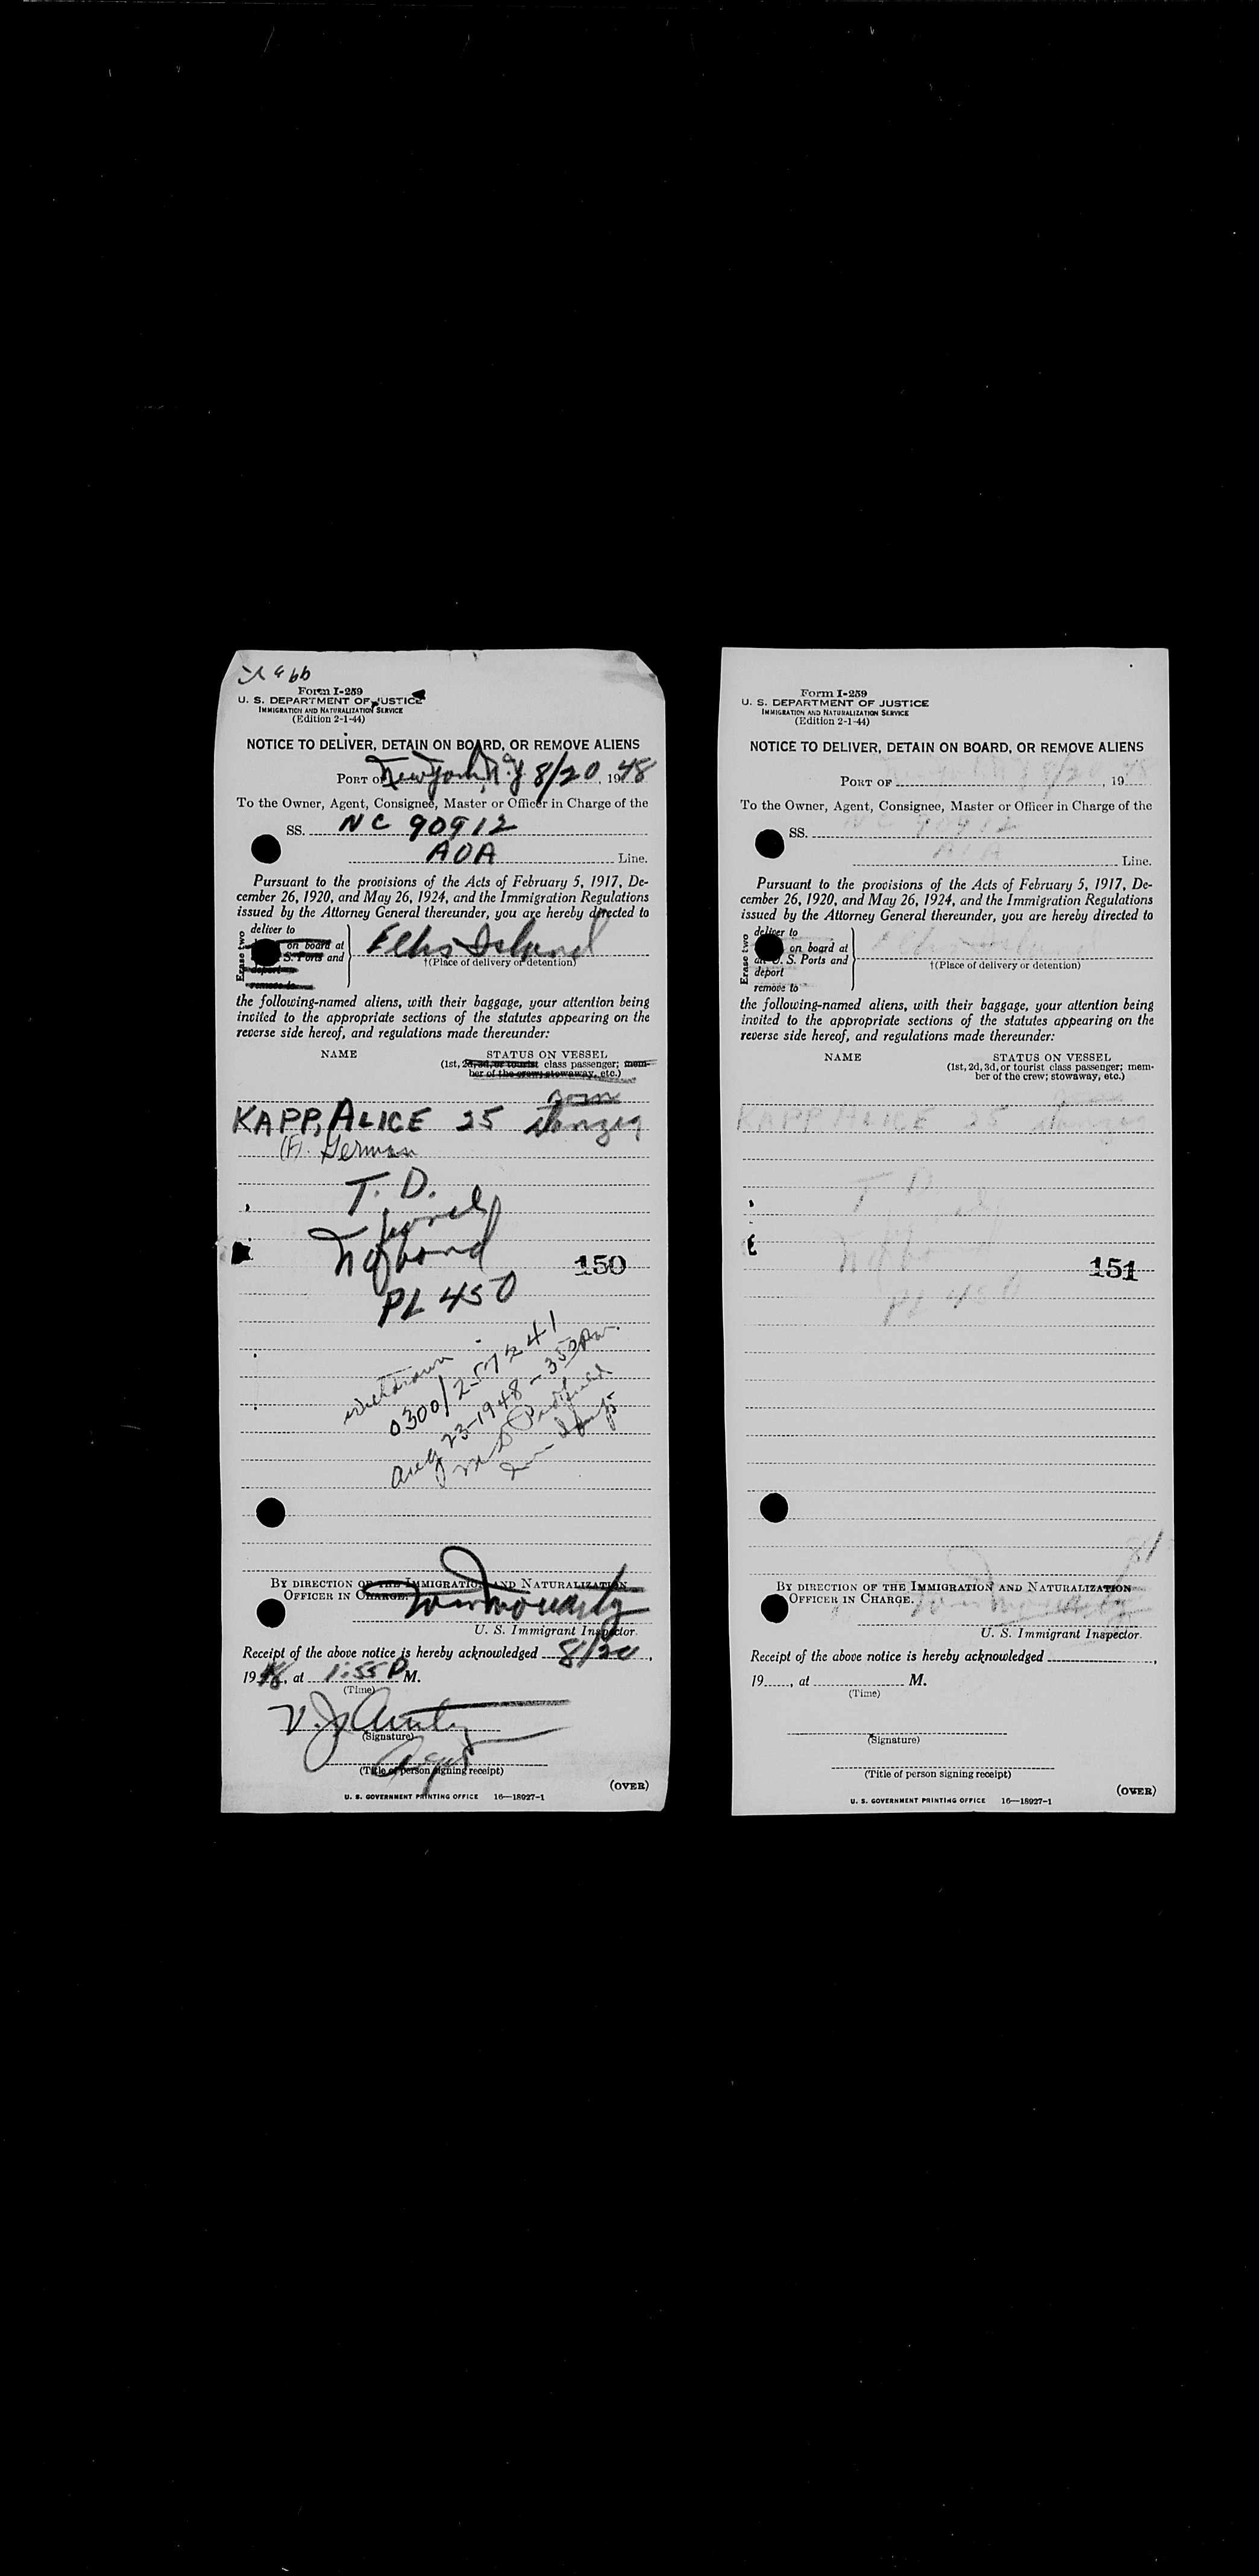 Form I-259
U. S. DEPARTMENT OF JUSTICE
IMMIGRATION AND NATURALIZATION SERVICE
(Edition 2-1-44)
NOTICE TO DELIVER, DETAIN ON BOARD, OR REMOVE ALIENS
PORT OF New York, N.Y 8/20, 1948
To the Owner, Agent, Consignee, Master or Officer in Charge of the
SS. NC 90912
AOA Line.
Pursuant to the provisions of the Acts of February 5, 1917, De-
cember 26, 1920, and May 26, 1924, and the Immigration Regulations
issued by the Attorney General thereunder, you are hereby directed to
Erase two
deliver to
on board at
S. Ports and
deport
remove to
Ellis Island
†(Place of delivery or detention)
the following-named aliens, with their baggage, your attention being
invited to the appropriate sections of the statutes appearing on the
reverse side hereof, and regulations made thereunder:
NAME STATUS ON VESSEL
(1st, 2d, 3d, or tourist class passenger; mem-
ber of the crew; stowaway, etc.)
born
KAPP, ALICE 25 Danzig
(F). German
T. D.
No bond
PL 450
150
withdrawn
0300/257241
Aug 23-1948 - 350 Pm.
BY DIRECTION OF THE IMMIGRATION AND NATURALIZATION
OFFICER IN CHARGE.
U. S. Immigrant Inspector.
Receipt of the above notice is hereby acknowledged 8/20,
1948, at 1:55 P M.
(Time)
V. J.
(Signature)
Agt
(Title of person signing receipt)
(OVER)
U. S. GOVERNMENT PRINTING OFFICE 16—18927-1
Form I-259
U. S. DEPARTMENT OF JUSTICE
IMMIGRATION AND NATURALIZATION SERVICE
(Edition 2-1-44)
NOTICE TO DELIVER, DETAIN ON BOARD, OR REMOVE ALIENS
PORT OF 8/20, 19 48
To the Owner, Agent, Consignee, Master or Officer in Charge of the
SS. NC 90912
AOA Line.
Pursuant to the provisions of the Acts of February 5, 1917, De-
cember 26, 1920, and May 26, 1924, and the Immigration Regulations
issued by the Attorney General thereunder, you are hereby directed to
Erase two
deliver to
on board at
S. Ports and
deport
remove to
Ellis Island
†(Place of delivery or detention)
the following-named aliens, with their baggage, your attention being
invited to the appropriate sections of the statutes appearing on the
reverse side hereof, and regulations made thereunder:
NAME STATUS ON VESSEL
(1st, 2d, 3d, or tourist class passenger; mem-
ber of the crew; stowaway, etc.)
KAPP ALICE 25 Danzig
T D
No bond
151
PL 450
BY DIRECTION OF THE IMMIGRATION AND NATURALIZATION
OFFICER IN CHARGE.
U. S. Immigrant Inspector.
Receipt of the above notice is hereby acknowledged ,
19 , at M.
(Time)
(Signature)
(Title of person signing receipt)
(OVER)
U. S. GOVERNMENT PRINTING OFFICE 16—18927-1